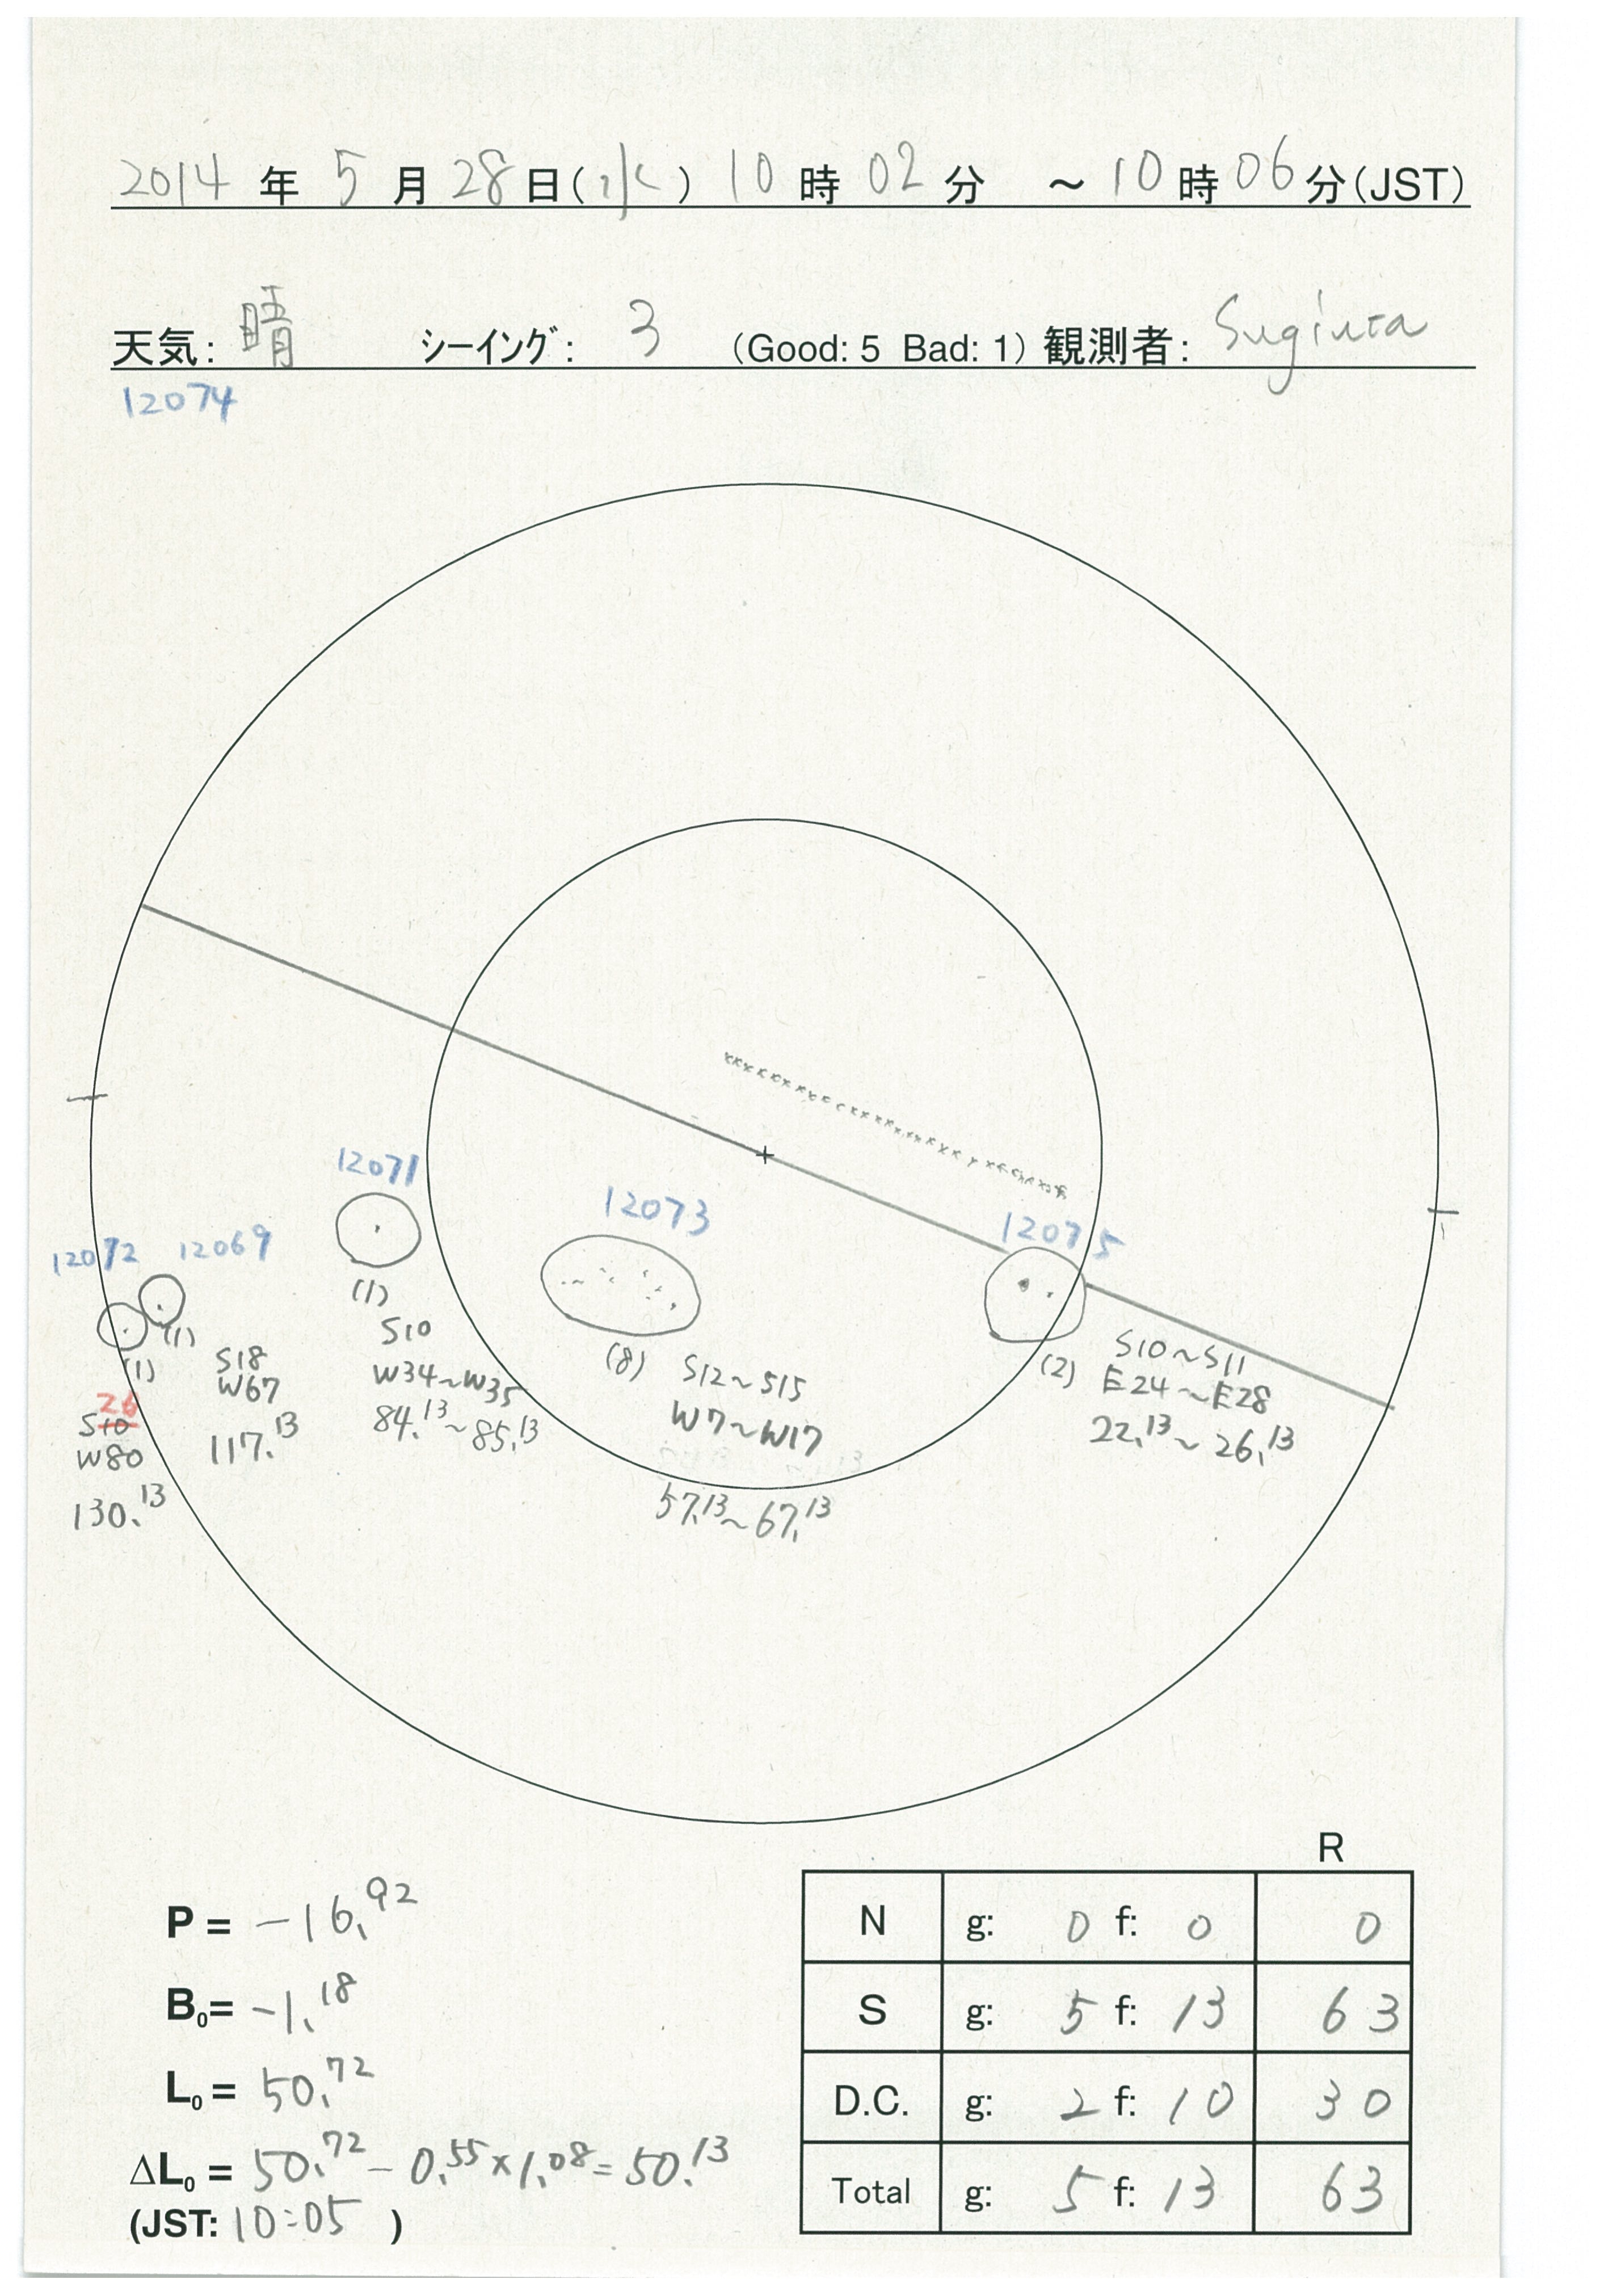 2014年5月28日(水)10時02分 ～10時06分(JST)
天気: 晴 シーイング: 3 (Good: 5 Bad: 1) 観測者: Sugiura
12074
12071
12073
12075
12072 12069
(1)
(1)
(1)
S10
W34~W35
84.13~85.13
(8) S12~S15
W7~W17
57.13~67.13
(2) S10~S11
E24~E28
22.13~26.13
S18
W67
117.13
26
S10
W80
130.13
P = -16.92
B0= -1.18
L0 = 50.72
ΔL0 = 50.72 - 0.55×1.08 = 50.13
(JST: 10:05 )
R
N g: 0 f: 0 0
S g: 5 f: 13 63
D.C. g: 2 f: 10 30
Total g: 5 f: 13 63